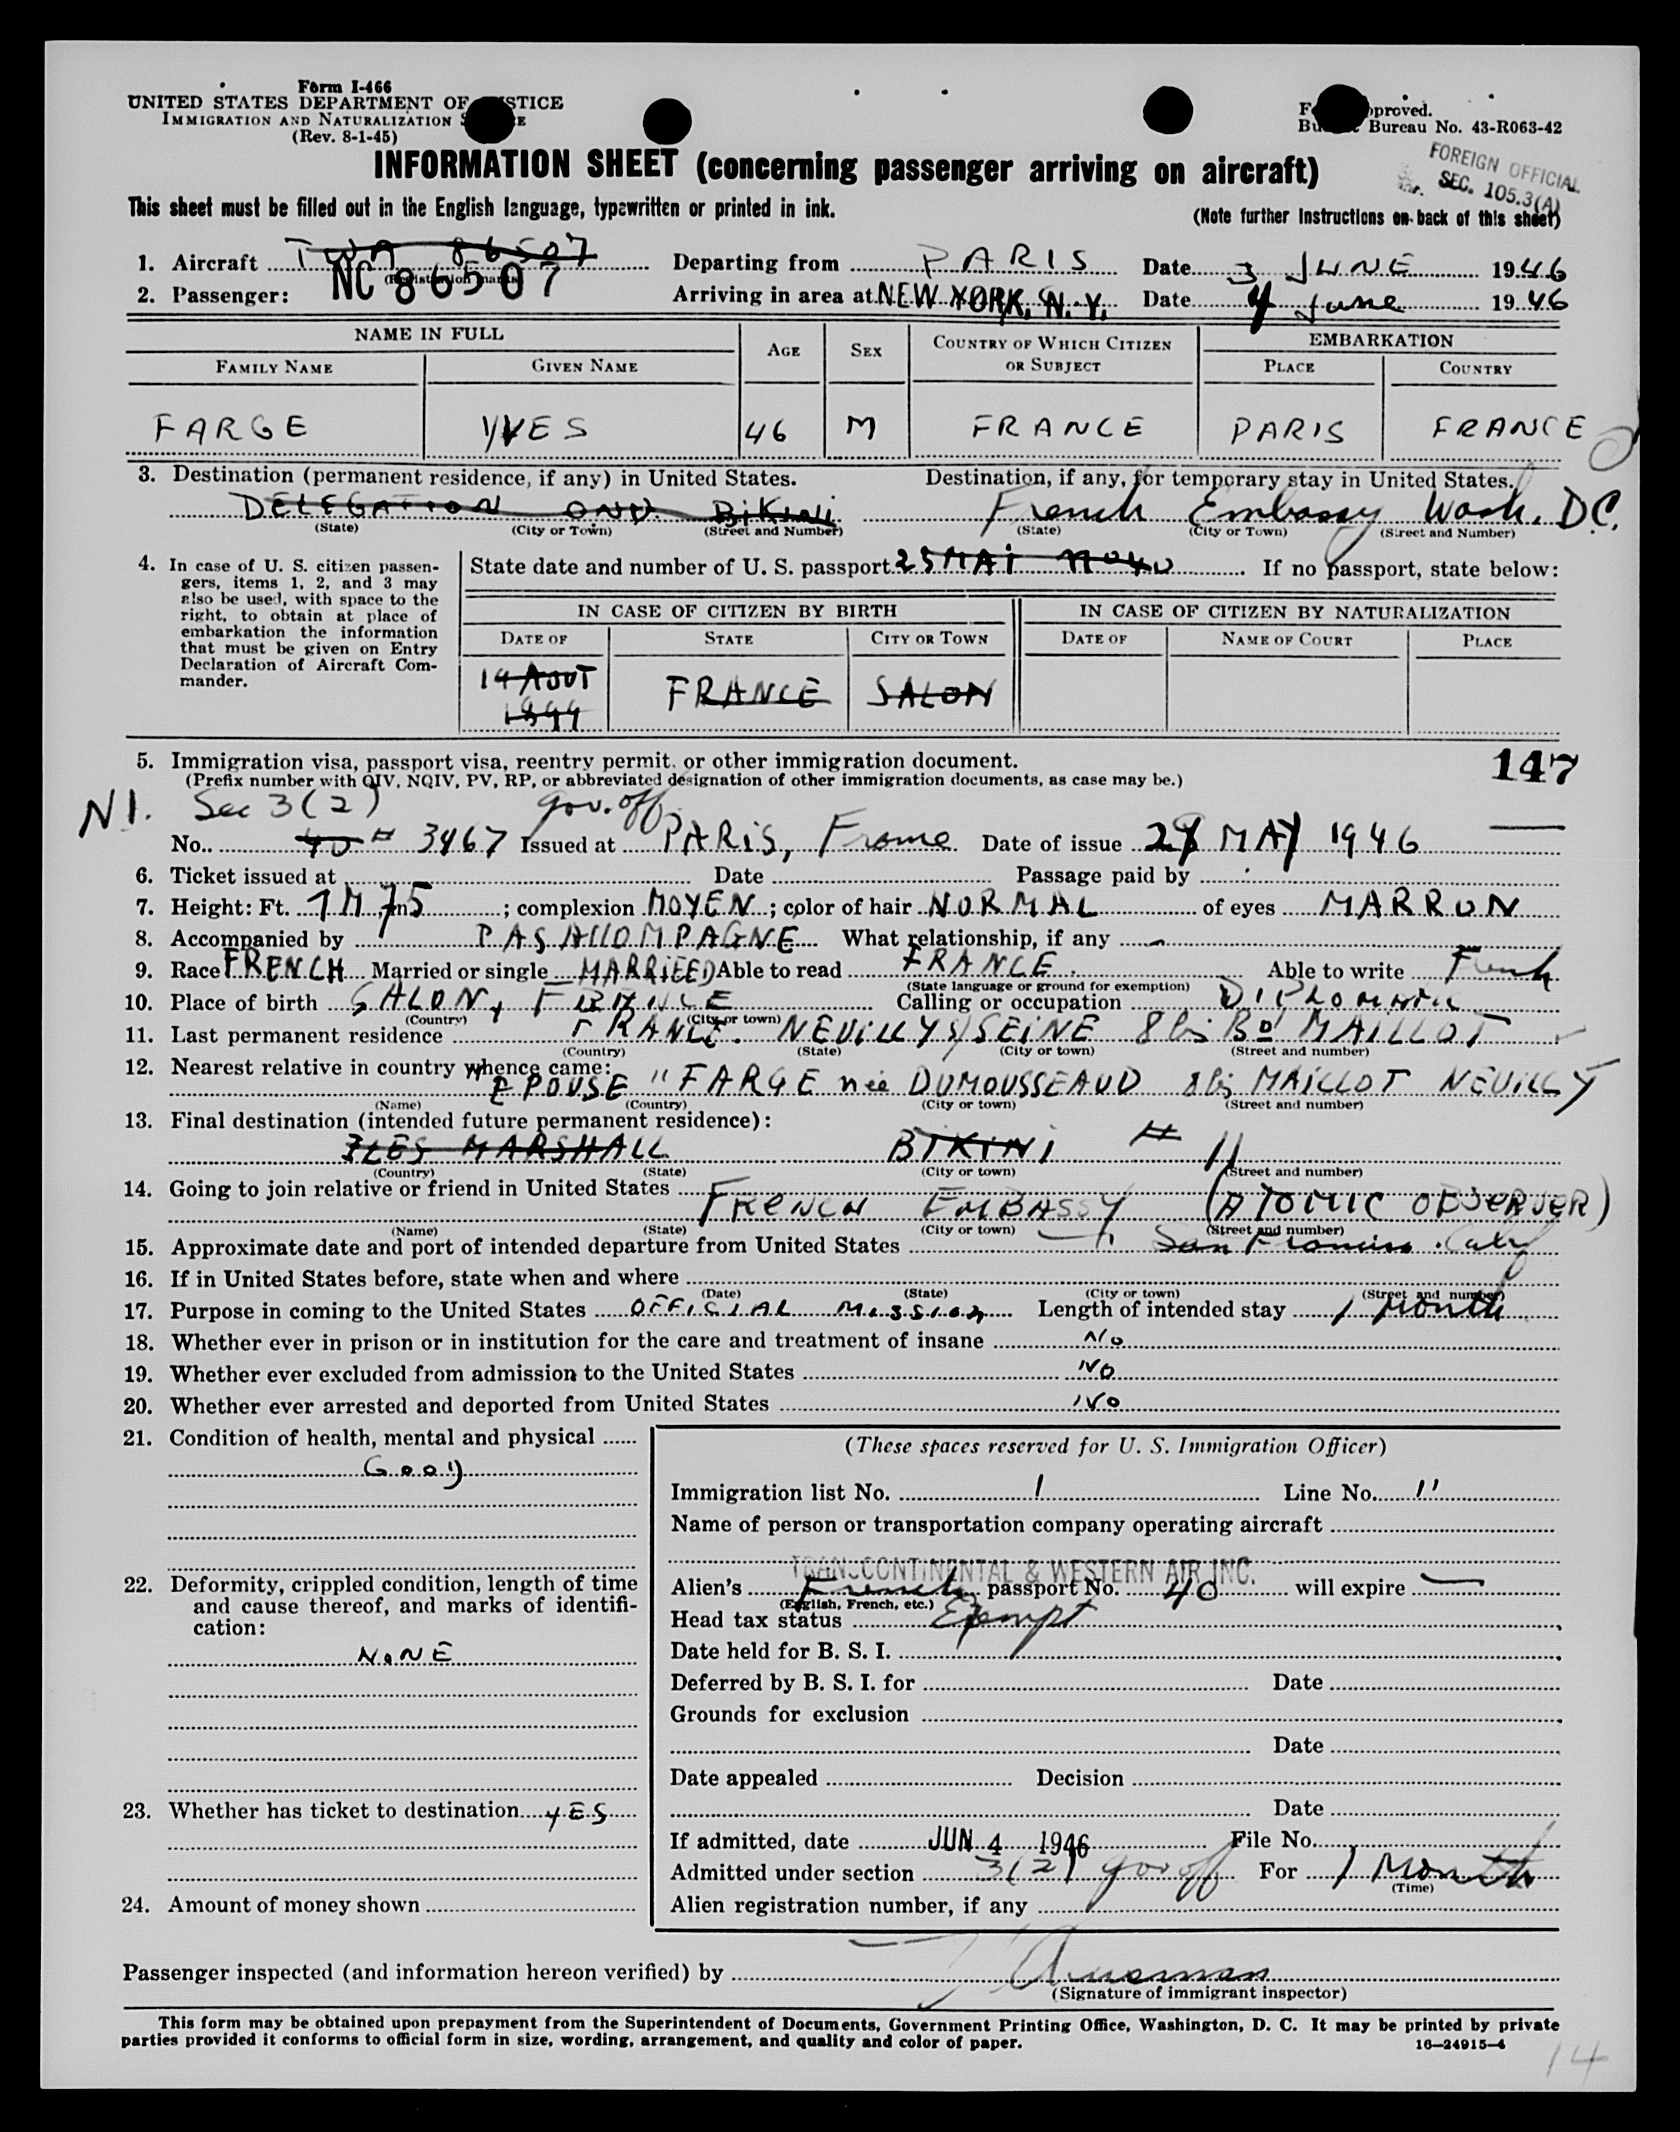 Form I-466
UNITED STATES DEPARTMENT OF JUSTICE
IMMIGRATION AND NATURALIZATION
(Rev. 8-1-45)
proved.
Bureau No. 43-R063-42
FOREIGN OFFICIAL
SEC. 105.3(A)
INFORMATION SHEET (concerning passenger arriving on aircraft)
This sheet must be filled out in the English language, typewritten or printed in ink.
(Note further instructions on back of this sheet)
1. Aircraft TWA 86507 Departing from PARIS Date 3 JUNE 1946
(Registration marks)
2. Passenger: NC 86507 Arriving in area at NEW YORK, N. Y. Date 4 June 1946
NAME IN FULL AGE SEX COUNTRY OF WHICH CITIZEN OR SUBJECT EMBARKATION
FAMILY NAME GIVEN NAME PLACE COUNTRY
FARGE YVES 46 M FRANCE PARIS FRANCE
3. Destination (permanent residence, if any) in United States. Destination, if any, for temporary stay in United States.
DELEGATION ONU BIKINI French Embassy Wash. D.C.
(State) (City or Town) (Street and Number) (State) (City or Town) (Street and Number)
4. In case of U. S. citizen passengers, items 1, 2, and 3 may also be used, with space to the right, to obtain at place of embarkation the information that must be given on Entry Declaration of Aircraft Commander.
State date and number of U. S. passport 25 MAI No 40 If no passport, state below:
IN CASE OF CITIZEN BY BIRTH IN CASE OF CITIZEN BY NATURALIZATION
DATE OF STATE CITY OR TOWN DATE OF NAME OF COURT PLACE
19 AOUT 1899 FRANCE SALON
5. Immigration visa, passport visa, reentry permit, or other immigration document. 147
(Prefix number with QIV, NQIV, PV, RP, or abbreviated designation of other immigration documents, as case may be.)
NI. Sec 3(2) gov. off.
No. 40 # 3467 Issued at PARIS, France Date of issue 28 MAY 1946
6. Ticket issued at Date Passage paid by
7. Height: Ft. 1M, In. 75; complexion MOYEN; color of hair NORMAL of eyes MARRON
8. Accompanied by PAS ACCOMPAGNE What relationship, if any —
9. Race FRENCH Married or single MARRIEED Able to read FRANCE. Able to write French
(State language or ground for exemption)
10. Place of birth SALON, FRANCE Calling or occupation DIPLOMATIC
(Country) (City or town)
11. Last permanent residence FRANCE. NEUILLY S/SEINE 8 bis Bd MAILLOT
(Country) (State) (City or town) (Street and number)
12. Nearest relative in country whence came:
EPOUSE " FARGE née DUMOUSSEAUD 8 bis MAILLOT NEUILLY
(Name) (Country) (City or town) (Street and number)
13. Final destination (intended future permanent residence):
ILES MARSHALL BIKINI # 11
(Country) (State) (City or town) (Street and number)
14. Going to join relative or friend in United States
FRENCH EMBASSY (ATOMIC OBSERVER)
(Name) (State) (City or town) (Street and number)
15. Approximate date and port of intended departure from United States San Francisco. Calif
16. If in United States before, state when and where
(Date) (State) (City or town) (Street and number)
17. Purpose in coming to the United States OFFICIAL MISSION Length of intended stay 1 Month
18. Whether ever in prison or in institution for the care and treatment of insane No
19. Whether ever excluded from admission to the United States NO
20. Whether ever arrested and deported from United States NO
21. Condition of health, mental and physical
GooD
22. Deformity, crippled condition, length of time and cause thereof, and marks of identification:
NoNE
23. Whether has ticket to destination YES
24. Amount of money shown
(These spaces reserved for U. S. Immigration Officer)
Immigration list No. 1 Line No. 11
Name of person or transportation company operating aircraft
TRANSCONTINENTAL & WESTERN AIR INC.
Alien's French passport No. 40 will expire —
(English, French, etc.)
Head tax status Exempt
Date held for B. S. I.
Deferred by B. S. I. for Date
Grounds for exclusion
Date
Date appealed Decision
Date
If admitted, date JUN 4 1946 File No.
Admitted under section 3(2) gov off For 1 Month
(Time)
Alien registration number, if any
Passenger inspected (and information hereon verified) by
(Signature of immigrant inspector)
This form may be obtained upon prepayment from the Superintendent of Documents, Government Printing Office, Washington, D. C. It may be printed by private
parties provided it conforms to official form in size, wording, arrangement, and quality and color of paper.
16—24915-4
14